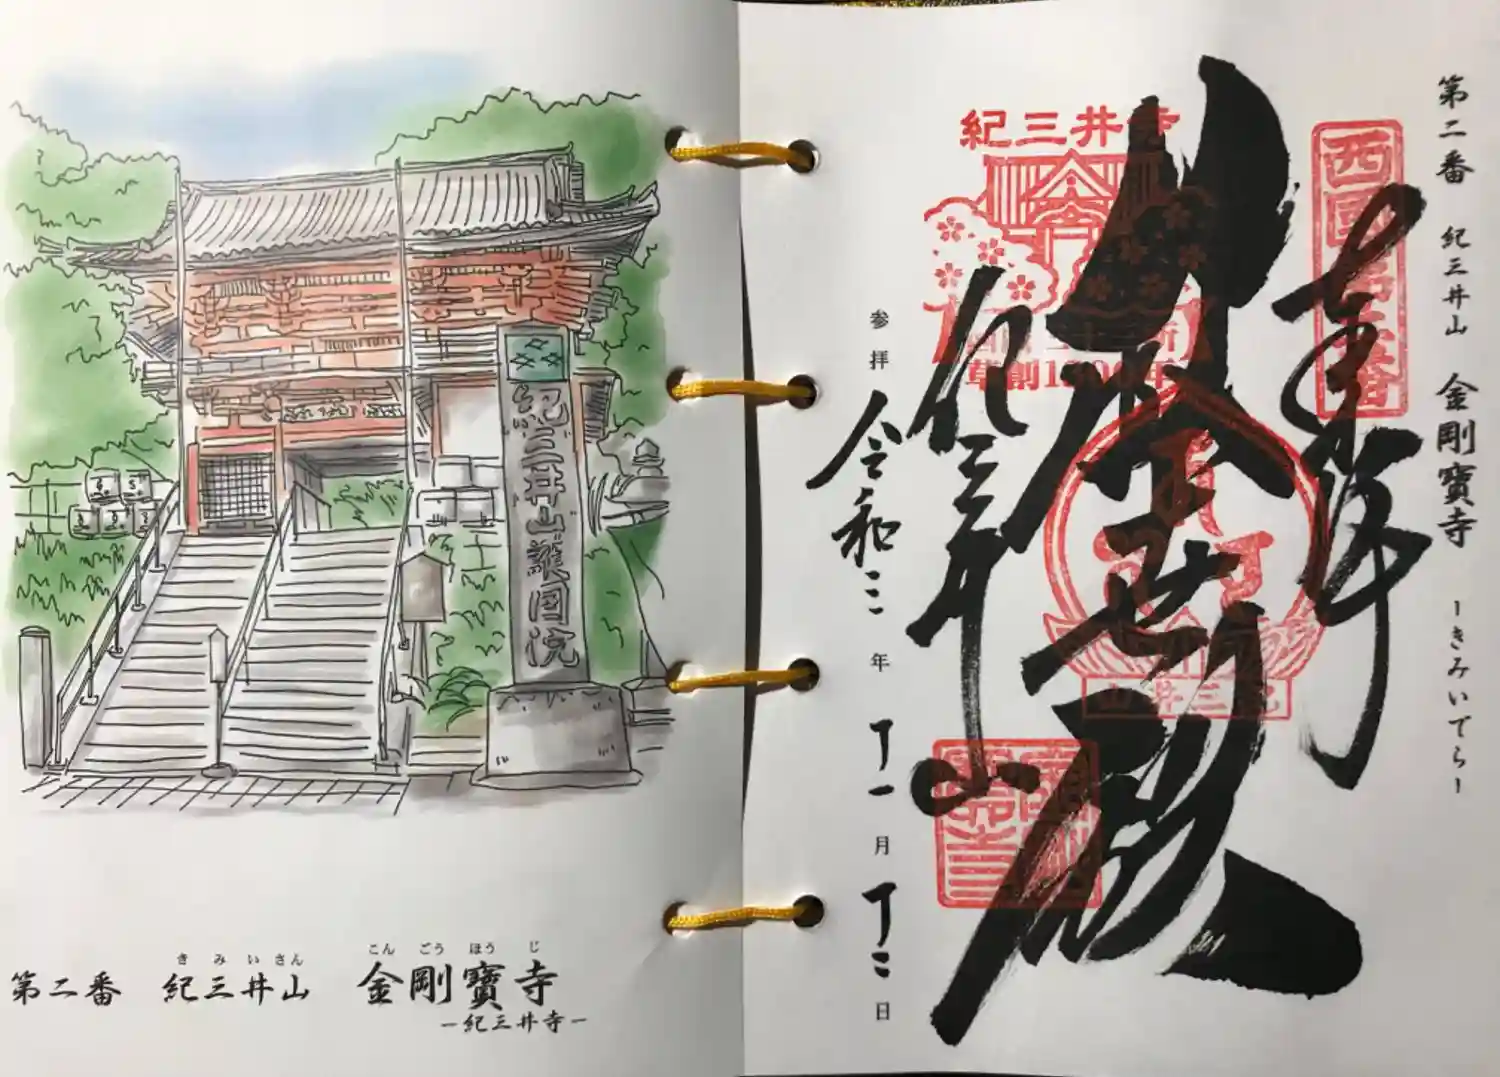 紀三井山護国院
きみいさん こんごうほうじ
第二番 紀三井山 金剛寶寺
ー紀三井寺ー
第二番 紀三井山 金剛寶寺 ーきみいでらー
奉拝
西國第二番
救世殿
紀三井寺
草創1300年
紀三井山
紀三井山
参拝 令和三年十一月十二日